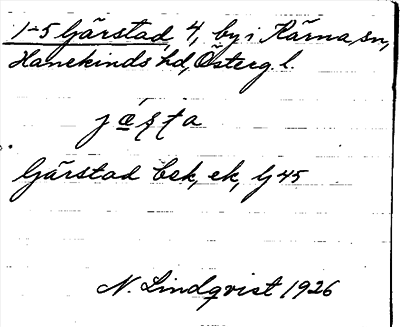 1-5 Gärstad, 4, by i Kärna sn,
Hanekinds hd, Österg l.
Gärstad bsk, ek, G 45
N. Lindqvist 1926